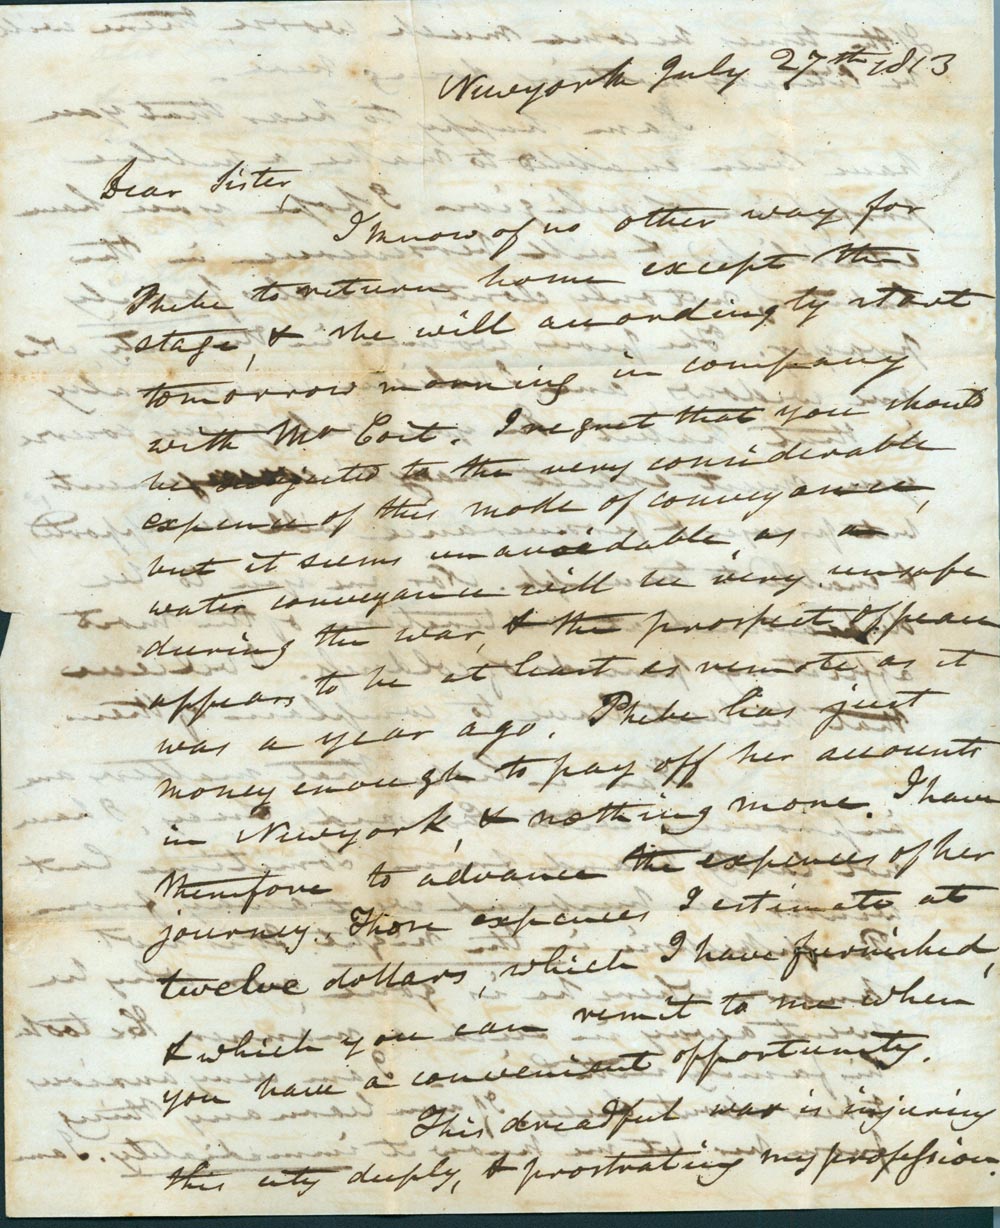 Newyork July 27th 1813
Dear Sister,
I know of no other way for
Phebe to return home except the
stage, & she will accordingly start
tomorrow morning in company
with Mr Coit. I regret that you should
be subjected to the very considerable
expence of this mode of conveyance,
but it seems unavoidable, as a
water conveyance will be very unsafe
during the war, & the prospect of peace
appears to be at least as remote as it
was a year ago. Phebe has just
money enough to pay off her accounts
in Newyork, & nothing more. I have
therefore to advance the expences of her
journey. Those expences I estimate at
twelve dollars, which I have furnished,
& which you can remit to me when
you have a convenient opportunity.
This dreadful war is injuring
this city deeply, & prostrating my profession.